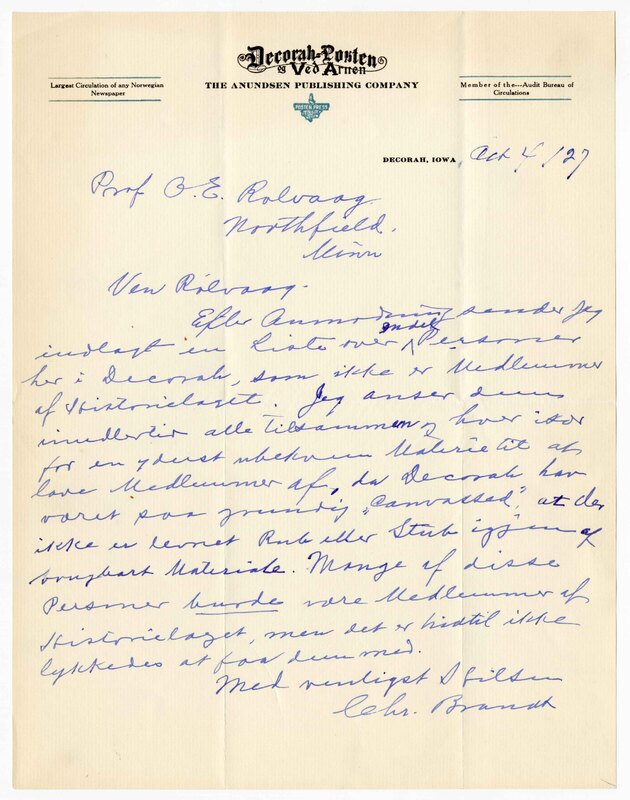 Decorah-Posten
og Ved Arnen
Largest Circulation of any Norwegian
Newspaper
THE ANUNDSEN PUBLISHING COMPANY
Member of the---Audit Bureau of
Circulations
POSTEN PRESS
DECORAH, IOWA Oct 4/27
Prof O. E. Rolvaag
Northfield.
Minn
Ven Rölvaag.
Efter Anmodning sender jeg
indlagt en Liste over endel Personer
her i Decorah, som ikke er Medlemmer
af Historielaget. Jeg anser dem
imidlertid alle tilsammen og hver især
for en yderst ubekvem Materie til at
lave Medlemmer af, da Decorah har
været saa grundig "canvassed", at der
ikke er levnet Rub eller Stub igjen af
brugbart Materiale. Mange af disse
Personer burde være Medlemmer af
Historielaget, men det er hidtil ikke
lykkedes at faa dem med.
Med venligst Hilsen
Chr. Brandt